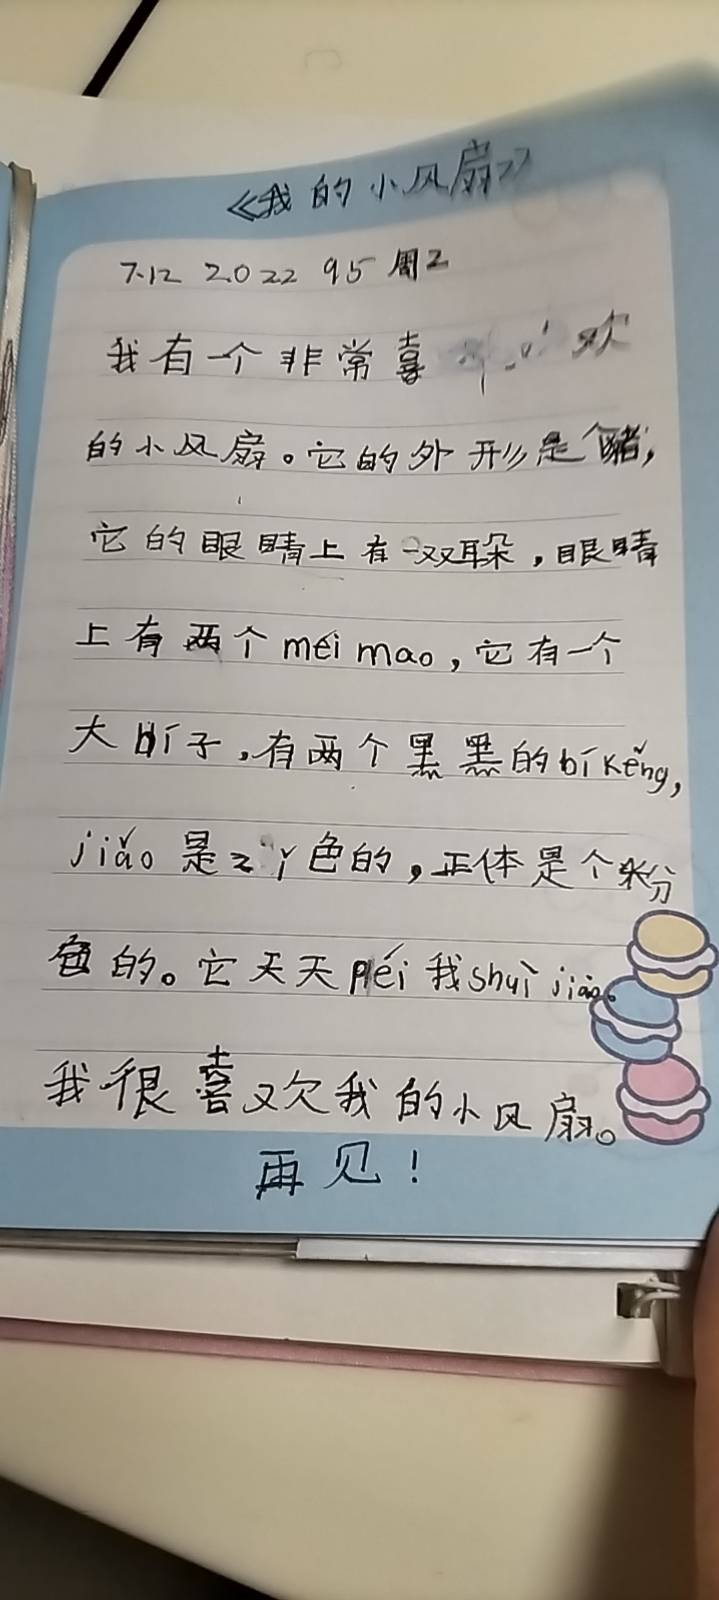 《我的小风扇》
7.12 2022 95 周2
我有一个非常喜欢
的小风扇。它的外形是个猪，
它的眼睛上有一双耳朵，眼睛
上有两个méi mao，它有一个
大bí子，有两个黑黑的bí kěng，
jiǎo 是 色的，正体是个粉
色的。它天天péi我shuì jiào。
我很喜欢我的小风扇。
再见！